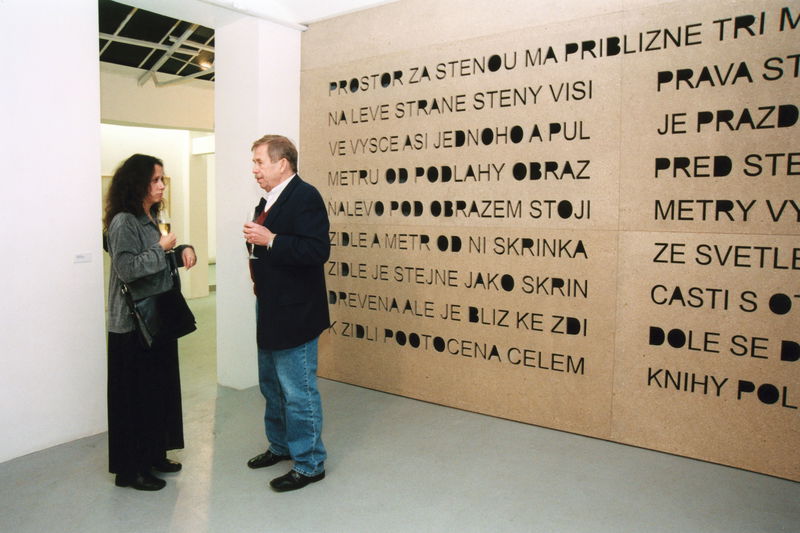 PROSTOR ZA STENOU MA PRIBLIZNE TRI M
NA LEVE STRANE STENY VISI
VE VYSCE ASI JEDNOHO A PUL
METRU OD PODLAHY OBRAZ
NALEVO POD OBRAZEM STOJI
ZIDLE A METR OD NI SKRINKA
ZIDLE JE STEJNE JAKO SKRIN
DREVENA ALE JE BLIZ KE ZDI
K ZIDLI POOTOCENA CELEM
PRAVA ST
JE PRAZD
PRED STE
METRY VY
ZE SVETLE
CASTI S OT
DOLE SE D
KNIHY POL